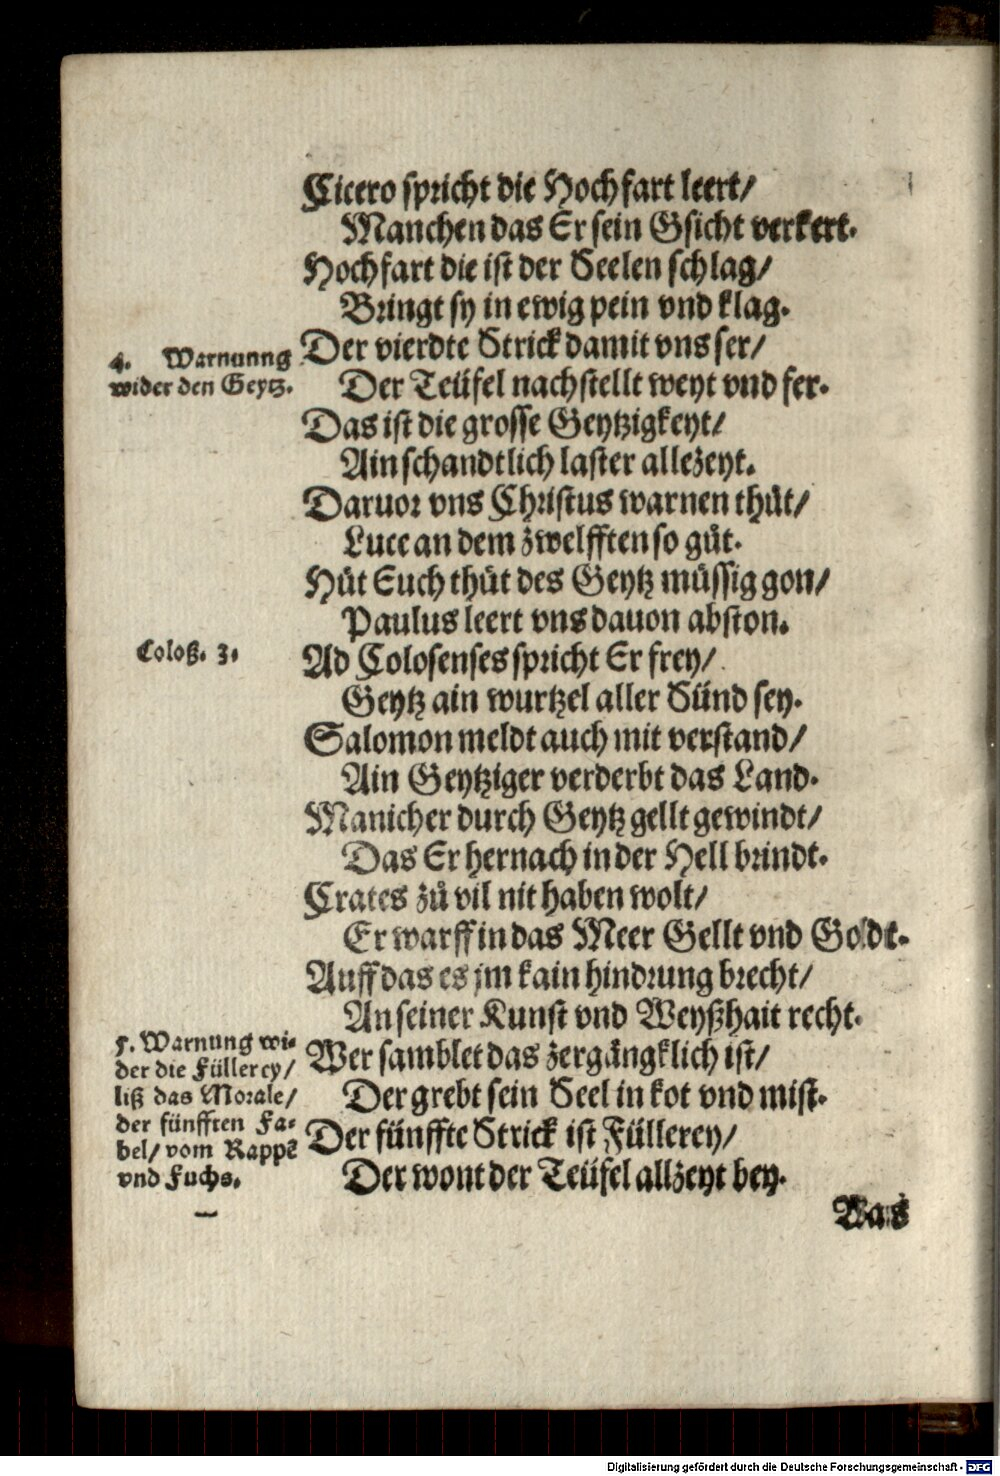 Cicero spricht die Hochfart leert/
Manchen das Er sein Gsicht verkert.
Hochfart die ist der Seelen schlag/
Bringt sy in ewig pein vnd klag.
4. Warnunng
wider den Geytz.
Der vierdte Strick damit vns ser/
Der Teüfel nachstellt weyt vnd fer.
Das ist die grosse Geytzigkeyt/
Ain schandtlich laster allezeyt.
Daruor vns Christus warnen thůt/
Luce an dem zwelfften so gůt.
Hüt Euch thüt des Geytz müssig gon/
Paulus leert vns dauon abston.
Coloß. 3.
Ad Colosenses spricht Er frey/
Geytz ain wurtzel aller Sünd sey.
Salomon meldt auch mit verstand/
Ain Geytziger verderbt das Land.
Manicher durch Geytz gellt gewindt/
Das Er hernach in der Hell brindt.
Crates zů vil nit haben wolt/
Er warff in das Meer Gellt vnd Goldt.
Auff das es jm kain hindrung brecht/
An seiner Kunst vnd Weyßhait recht.
5. Warnung wi-
der die Füllerey/
liß das Morale/
der fünfften Fa-
bel/ vom Rappē
vnd Fuchs.
Wer samblet das zergängklich ist/
Der grebt sein Seel in kot vnd mist.
Der fünffte Strick ist Füllerey/
Der wont der Teüfel allzeyt bey.
Was
Digitalisierung gefördert durch die Deutsche Forschungsgemeinschaft - DFG